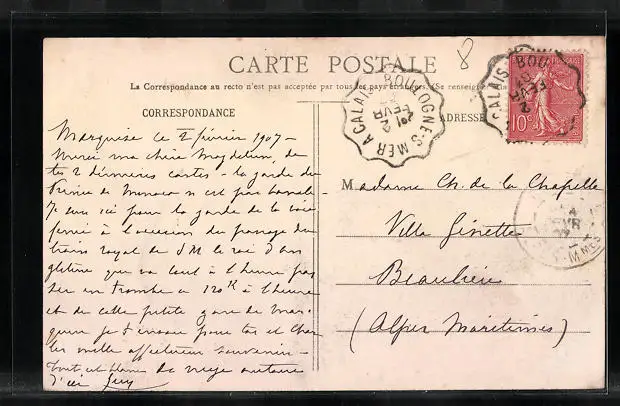 8
CARTE POSTALE
La Correspondance au recto n'est pas acceptée par tous les pays étrangers. (Se renseigner
CORRESPONDANCE
ADRESSE
BOULOGNE-S-MER A CALAIS
2
FEVR
CALAIS BOU
2
FEVR
10c
Marquise ce 2 février 1907 -
Merci ma chère Magdeleine, de
tes 2 dernières cartes - la garde du
Prince de Monaco n'est pas banale -
Je suis ici pour la garde de la voie
ferrée à l'occasion du passage du
train royal de S M le roi d'An
gleterre qui va tout à l'heure pas
ser en trombe à 120K à l'heure
et de cette petite gare de Mar
quise je t'envoie pour toi et Char
les mille affectueux souvenirs -
tout est blanc de neige autour
d'ici Guy
Madame Ch. de la Chapelle
Villa Ginette
Beaulieu
(Alpes Maritimes)